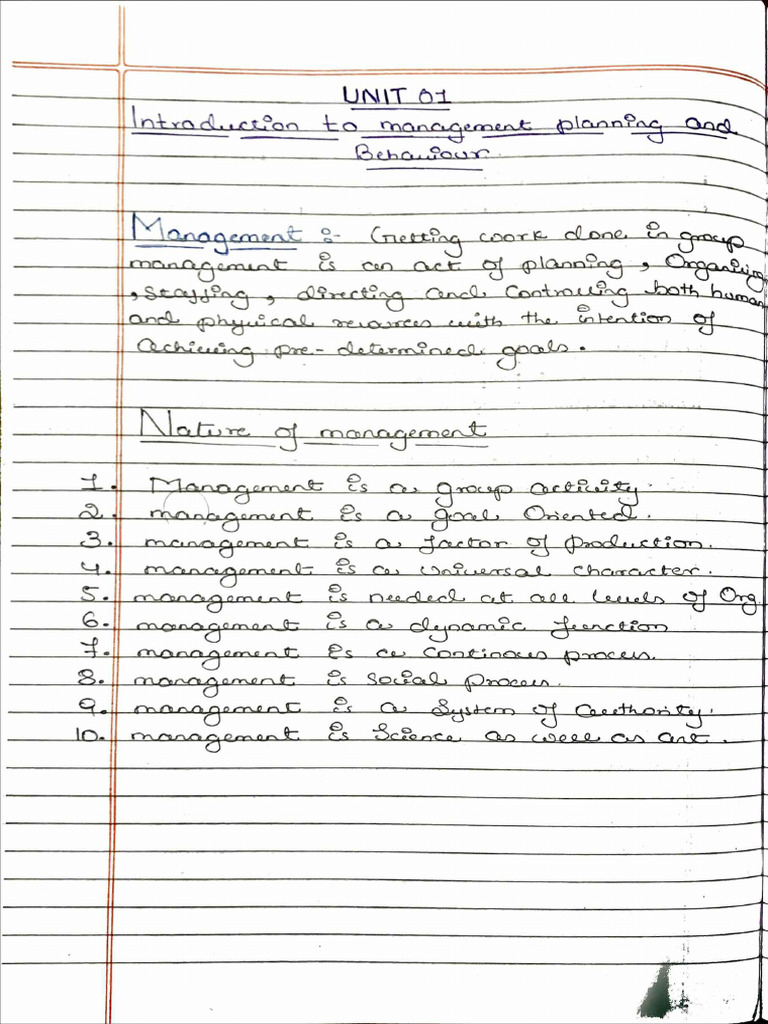 UNIT 01
Introduction to management planning and
Behaviour.
Management :- Getting work done in group
management is an act of planning, Organising
, Staffing, directing and Controlling both human
and physical resources with the intention of
Achieving pre-determined goals.
Nature of management
1. Management is a group activity.
2. management is a goal Oriented.
3. management is a factor of production.
4. management is a universal character.
5. management is needed at all levels of Org
6. management is a dynamic function
7. management is a Continous process.
8. management is social process.
9. management is a System of authority.
10. management is Science as well as art.